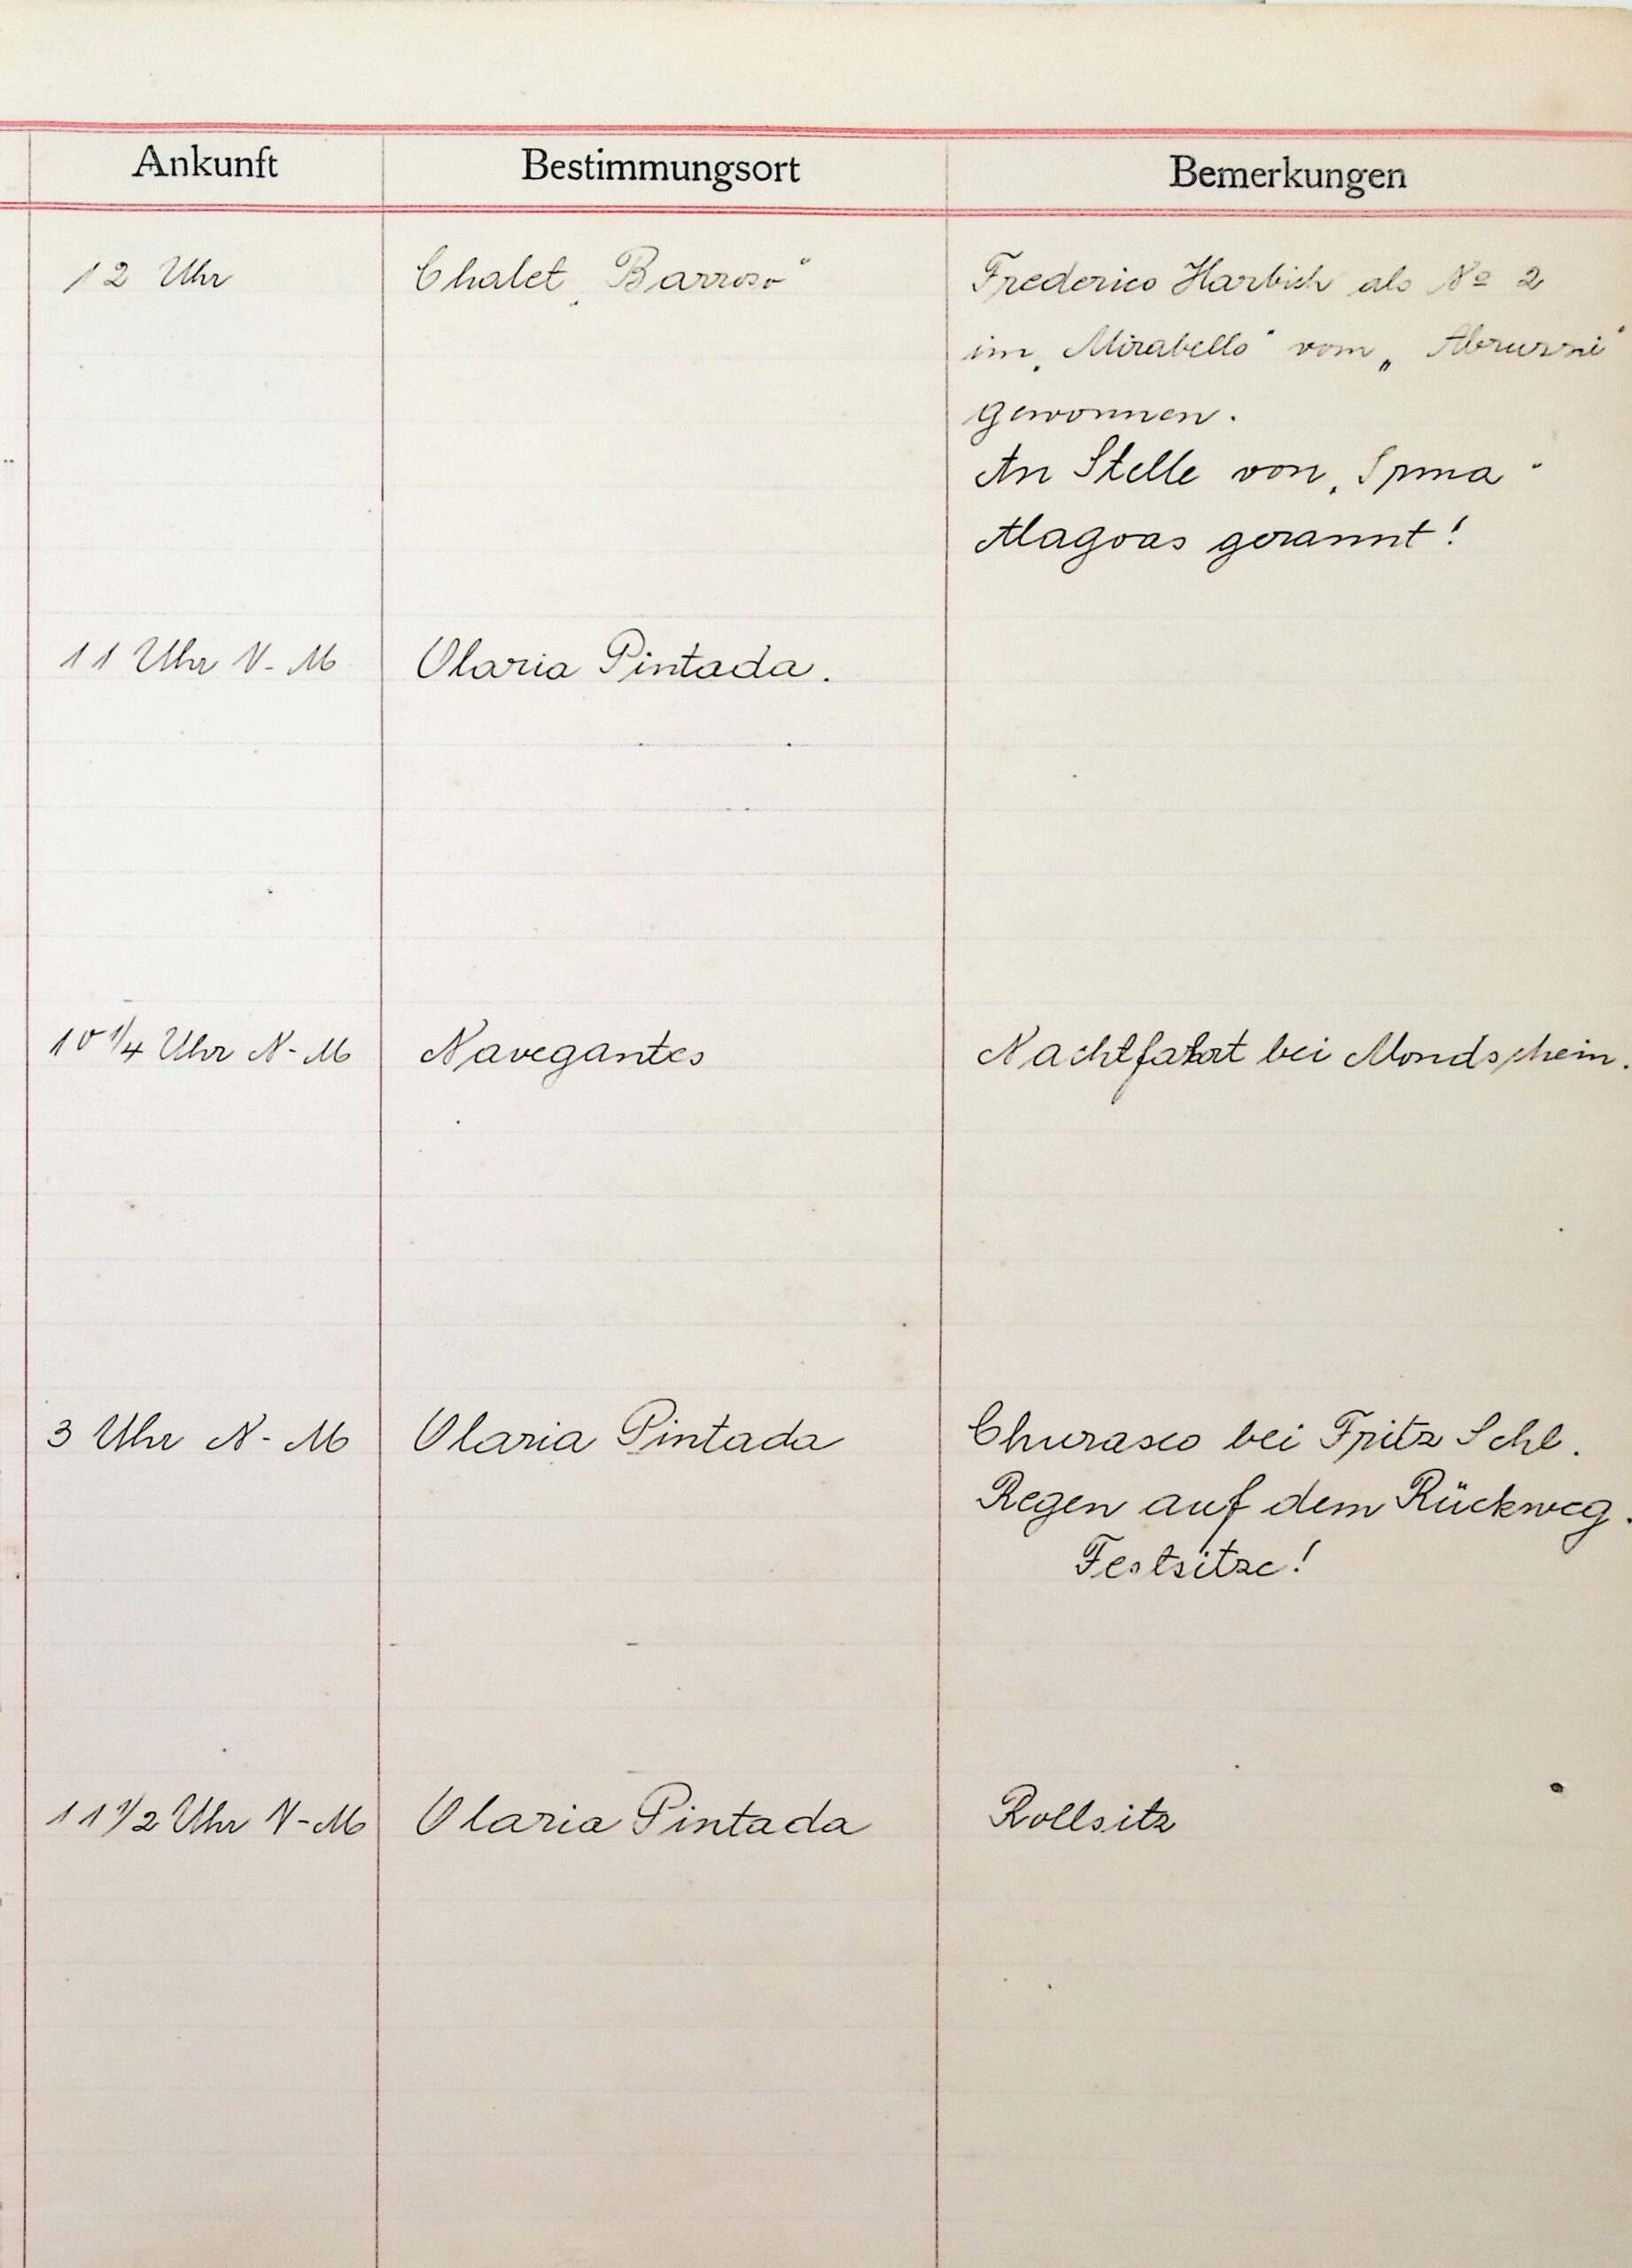 Ankunft Bestimmungsort Bemerkungen
12 Uhr Chalet „Barroso“ Frederico Harbich als Nº 2
im „Mirabello“ vom „Abruzzi“
gewonnen.
An Stelle von „
Alagoas gerannt!
11 Uhr V-M Olaria Pintada.
10 1/4 Uhr N-M Navegantes Nachtfahrt bei Mondschein.
3 Uhr N-M Olaria Pintada Churasco bei Fritz Schl.
Regen auf dem Rückweg.
Festsitze!
11 1/2 Uhr V-M Olaria Pintada Rollsitz